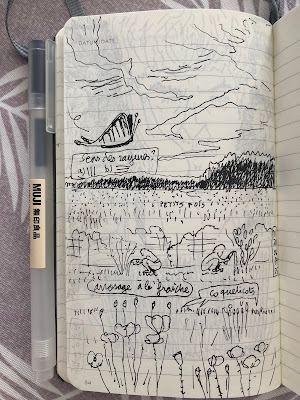 DATUM/DATE:
Sens des rayures?
a) b)
PETITS POIS
Arrosage à la fraîche
Coquelicots
MUJI
無印良品